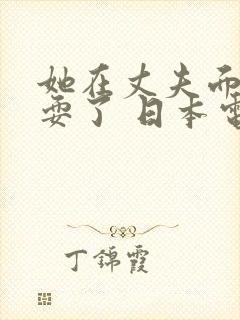 她在丈夫而
耍了 日本電
丁錦霞